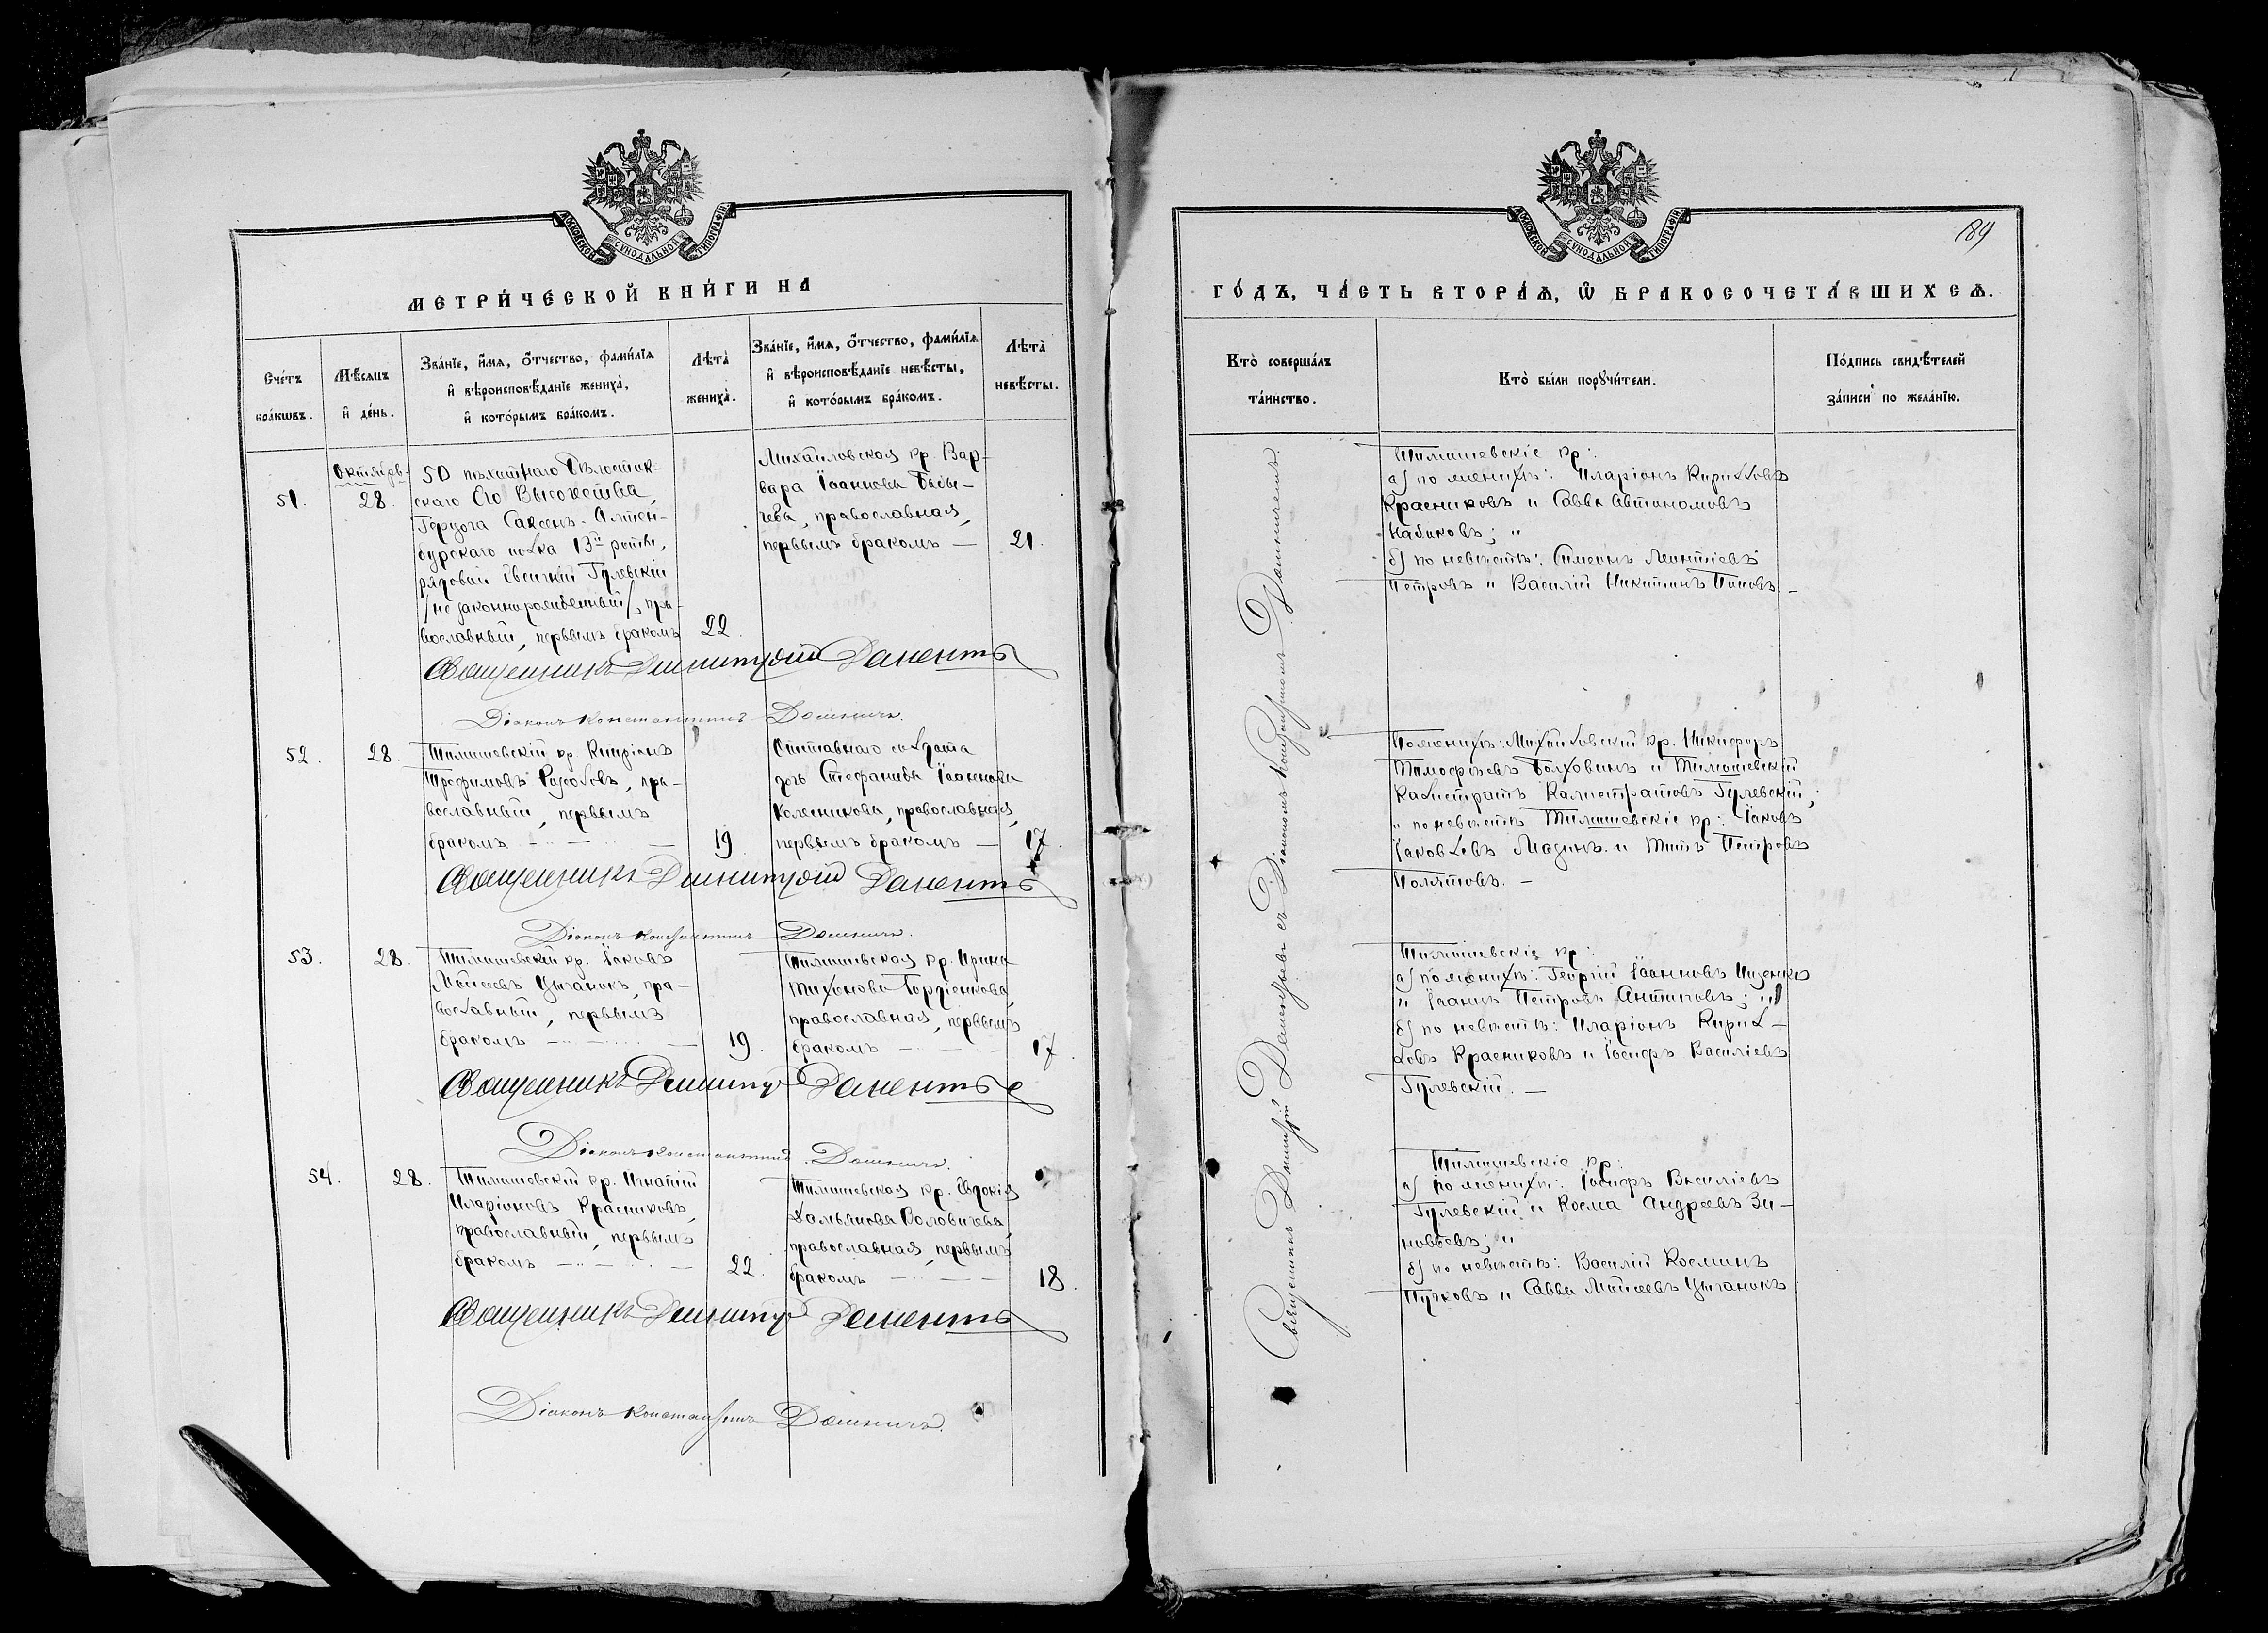 МОСКОВСКОЙ СѴНОДАЛЬНОЙ ТИПОГРАФІИ
МЕТРИ́ЧЕСКОЙ КНИ́ГИ НА
Сче́тъ бра́кѡвъ.
Мѣ́сѧцъ и҆ де́нь.
Зва́нїе, и҆́мѧ, ѻ҆́тчество, фами́лїѧ
и҆ вѣроисповѣ́данїе жениха̀,
и҆ кото́рымъ бра́комъ.
Лѣта̀
жениха̀.
Зва́нїе, и҆́мѧ, ѻ҆́тчество, фами́лїѧ
и҆ вѣроисповѣ́данїе невѣ́сты,
и҆ кото́рымъ бра́комъ.
Лѣта̀
невѣ́сты.
51.
Октябр.
28.
50 пѣхотнаго Бѣлосток-
скаго Его Высочества,
Герцога Саксенъ-Альтен-
бургскаго полка 13й роты,
рядовой Гулевскій
/незаконнорожденный/, пра-
вославный, первымъ бракомъ
22.
Михайловская кр. Вар-
вара Іоаннова
православная,
первымъ бракомъ —
21.
Священникъ Димитрій Дементь
Діаконъ Константинъ Дашкичъ.
52.
28.
Тимашевскій кр. Киндрань
Трофимовъ пра-
вославный, первымъ
бракомъ —
19
Отставнаго солдата
дочь Стефанида Іоаннова
Колесникова, православная,
первымъ бракомъ —
17.
Священникъ Димитрій Дементь
Діаконъ Константинъ Дашкичъ.
53.
28.
Тимашевскій кр. Іаковъ
Моисеевъ Цыганокъ, пра-
вославный, первымъ
бракомъ —
19.
Тимашевская кр. Ирина
Тихонова Гордіенкова,
православная, первымъ
бракомъ —
17.
Священникъ Димитр Дементье
Діаконъ Константинъ Дашкичъ.
54.
28.
Тимашевскій кр. Игнатій
Иларіоновъ Красниковъ,
православный, первымъ
бракомъ —
22.
Тимашевская кр. Евдокія
Дамьянова Воловичева,
православная, первымъ
бракомъ —
18.
Священникъ Димитр Дементь
Діаконъ Константинъ Дашкичъ.
МОСКОВСКОЙ СѴНОДАЛЬНОЙ ТИПОГРАФІИ
189
ГО́ДЪ, ЧА́СТЬ ВТОРА́Ѧ, Ѡ҆ БРАКОСОЧЕТА́ВШИХСѦ.
Кто̀ соверша́лъ
та́инство.
Кто̀ бы́ли порꙋчи́тели.
По́дпись свидѣ́телей
за́писи по жела́нїю.
Священникъ Димитрій Дементьевъ съ Діакономъ Константиномъ Дашкичемъ.
Тимашевскіе кр:
а) по женихѣ: Иларіонъ Кирилловъ
Красниковъ и Савва Автономовъ
Набоковъ; "
б) по невѣстѣ: Симеонъ Леонтіевъ
Петровъ и Василій Никитинъ Поповъ —
По женихѣ: Михайловскій кр. Никифоръ
Тимофѣевъ Болховинъ и Тимашевскій
Калистратъ Калистратовъ Гулевскій;
" по невѣстѣ Тимашевскіе кр: Іаковъ
Іаковлевъ Мазинъ и Титъ Петровъ
Полятовъ. —
Тимашевскіе кр:
а) по женихѣ: Георгій Іоанновъ Ищенко
" Іоаннъ Петровъ Антиповъ; "
б) по невѣстѣ: Иларіонъ Кирил-
ловъ Красниковъ и Іосифъ Василіевъ
Гулевскій. —
Тимашевскіе кр:
а) по женихѣ: Іосифъ Василіевъ
Гулевскій и Косма Андреевъ Зи-
новьевъ; "
б) по невѣстѣ: Василій Косминъ
Пучковъ и Савва Моисеевъ Цыганокъ